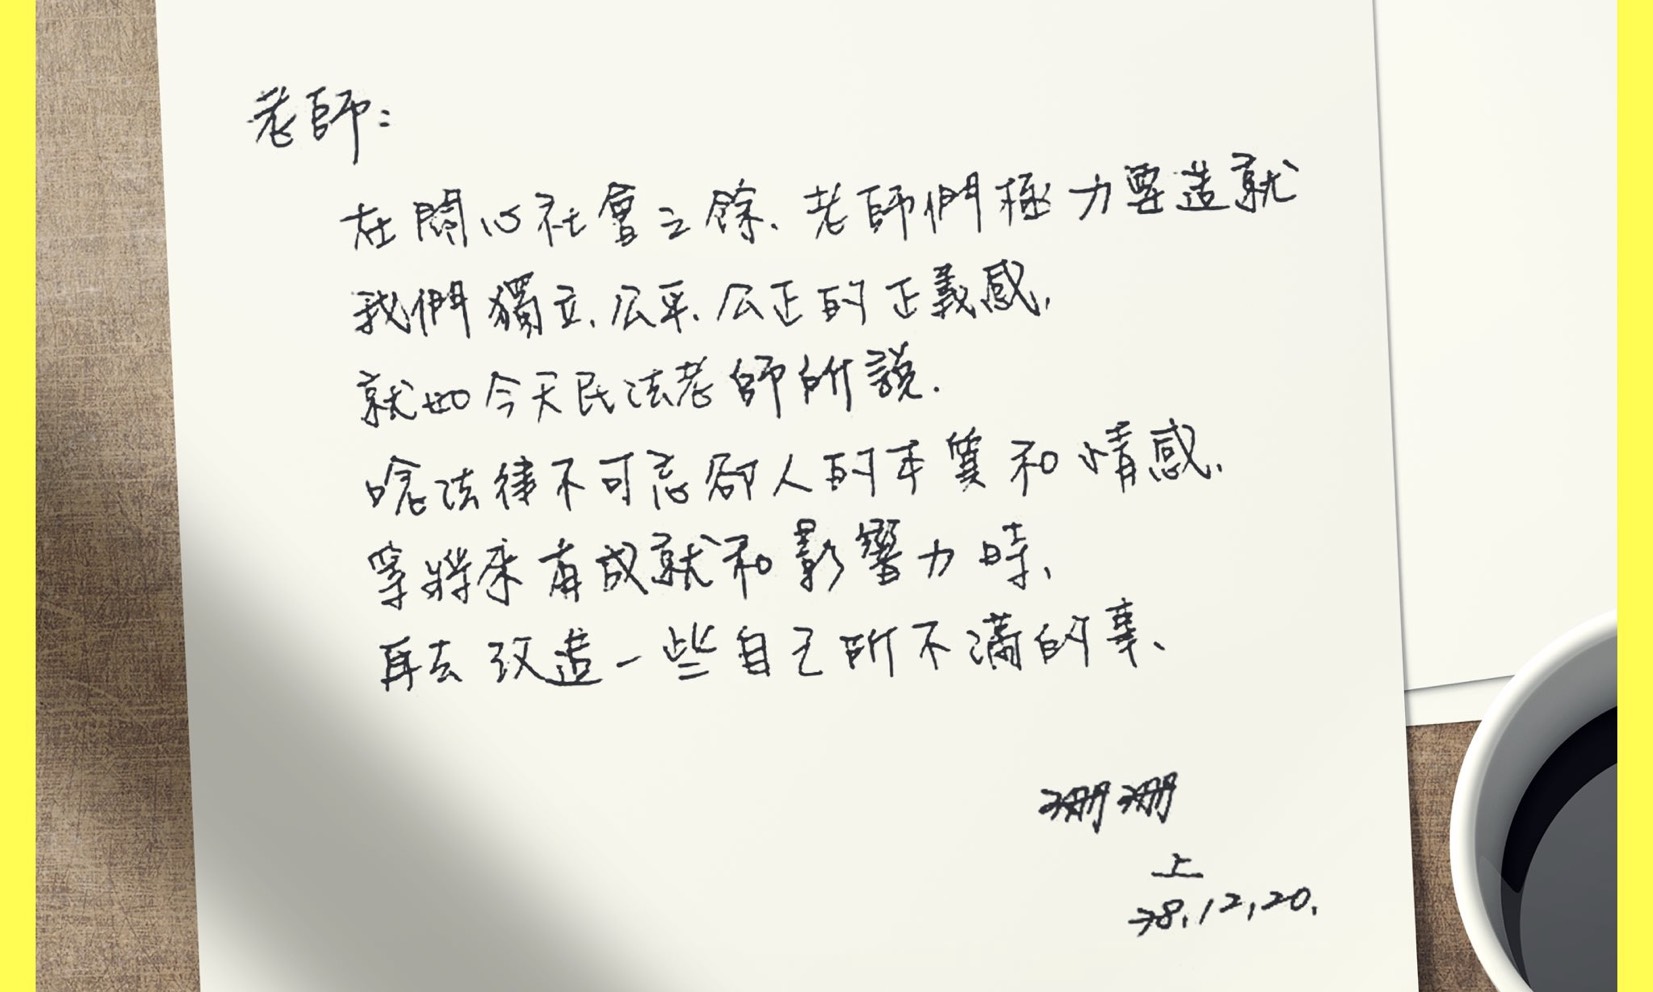 老師:
在關心社會之餘、老師們極力要造就
我們獨立、公平、公正的正義感,
就如今天民法老師所說.
唸法律不可忘卻人的本質和情感,
等將來有成就和影響力時、
再去改造一些自己所不滿的事、
珊珊
上
78.12.20.